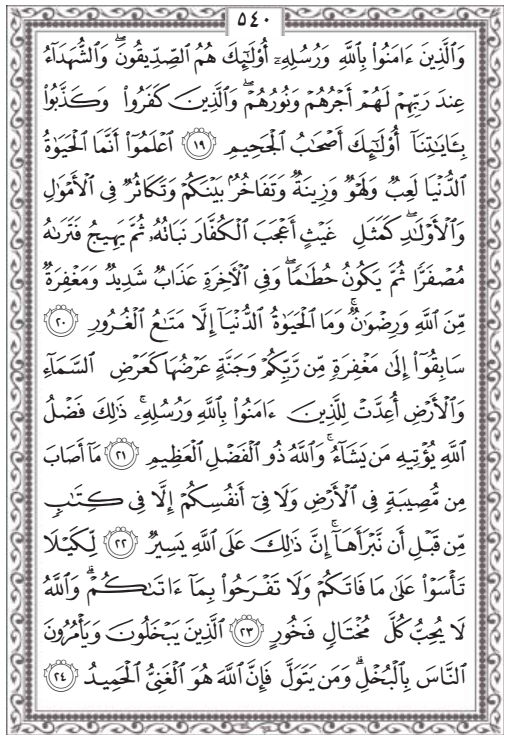 ٥٤٠
وَالَّذِينَ ءَامَنُوا۟ بِاللَّهِ وَرُسُلِهِۦٓ أُو۟لَٰٓئِكَ هُمُ الصِّدِّيقُونَ ۖ وَالشُّهَدَآءُ
عِندَ رَبِّهِمْ لَهُمْ أَجْرُهُمْ وَنُورُهُمْ ۖ وَالَّذِينَ كَفَرُوا۟ وَكَذَّبُوا۟
بِـَٔايَٰتِنَآ أُو۟لَٰٓئِكَ أَصْحَٰبُ الْجَحِيمِ ١٩ اعْلَمُوٓا۟ أَنَّمَا الْحَيَوٰةُ
الدُّنْيَا لَعِبٌ وَلَهْوٌ وَزِينَةٌ وَتَفَاخُرٌۢ بَيْنَكُمْ وَتَكَاثُرٌ فِى الْأَمْوَٰلِ
وَالْأَوْلَٰدِ ۖ كَمَثَلِ غَيْثٍ أَعْجَبَ الْكُفَّارَ نَبَاتُهُۥ ثُمَّ يَهِيجُ فَتَرَىٰهُ
مُصْفَرًّا ثُمَّ يَكُونُ حُطَٰمًا ۖ وَفِى الْءَاخِرَةِ عَذَابٌ شَدِيدٌ وَمَغْفِرَةٌ
مِّنَ اللَّهِ وَرِضْوَٰنٌ ۚ وَمَا الْحَيَوٰةُ الدُّنْيَآ إِلَّا مَتَٰعُ الْغُرُورِ ٢٠
سَابِقُوٓا۟ إِلَىٰ مَغْفِرَةٍ مِّن رَّبِّكُمْ وَجَنَّةٍ عَرْضُهَا كَعَرْضِ السَّمَآءِ
وَالْأَرْضِ أُعِدَّتْ لِلَّذِينَ ءَامَنُوا۟ بِاللَّهِ وَرُسُلِهِۦ ۚ ذَٰلِكَ فَضْلُ
اللَّهِ يُؤْتِيهِ مَن يَشَآءُ ۚ وَاللَّهُ ذُو الْفَضْلِ الْعَظِيمِ ٢١ مَآ أَصَابَ
مِن مُّصِيبَةٍ فِى الْأَرْضِ وَلَا فِىٓ أَنفُسِكُمْ إِلَّا فِى كِتَٰبٍ
مِّن قَبْلِ أَن نَّبْرَأَهَآ ۚ إِنَّ ذَٰلِكَ عَلَى اللَّهِ يَسِيرٌ ٢٢ لِّكَيْلَا
تَأْسَوْا۟ عَلَىٰ مَا فَاتَكُمْ وَلَا تَفْرَحُوا۟ بِمَآ ءَاتَىٰكُمْ ۗ وَاللَّهُ
لَا يُحِبُّ كُلَّ مُخْتَالٍ فَخُورٍ ٢٣ الَّذِينَ يَبْخَلُونَ وَيَأْمُرُونَ
النَّاسَ بِالْبُخْلِ ۗ وَمَن يَتَوَلَّ فَإِنَّ اللَّهَ هُوَ الْغَنِىُّ الْحَمِيدُ ٢٤